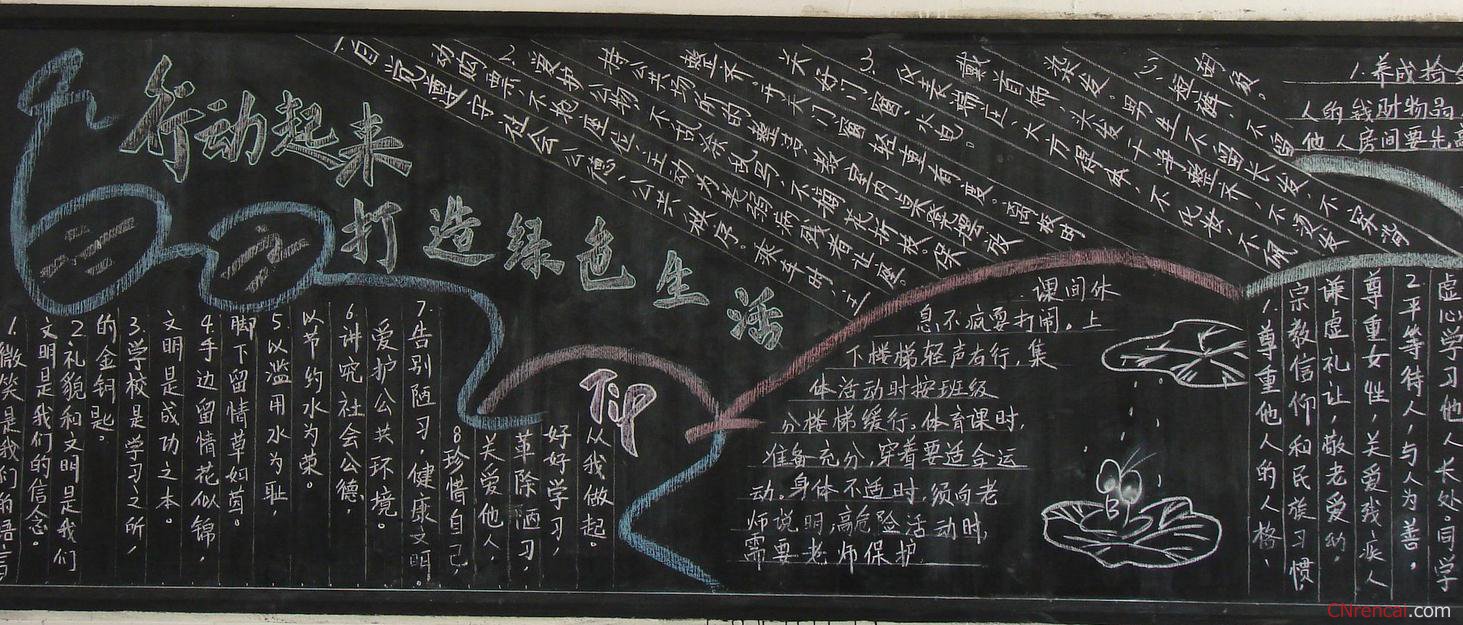 行动起来
打造绿色生活
1.微笑是我们的语言
文明是我们的信念。
2.礼貌和文明是我们
的金钥匙。
3.学校是学习之所，
文明是成功之本。
4.手边留情花似锦，
脚下留情草如茵。
5.以滥用水为耻
以节约水为荣。
6.讲究社会公德，
爱护公共环境。
7.告别陋习，健康文明。
8.珍惜自己，
关爱他人，
革除陋习，
好好学习，
从我做起。
TiP
自觉遵守社会公德，公共秩序。乘车时，主
动购票，不抢座位，主动为老弱病残者让座。
2、爱护公物，不摘花折枝。保
持公共场所的整洁，教室内
整齐。开关门窗轻重有度。
关好门窗、水电。
3、仪表端正、大方得体，不化妆，不佩
戴首饰，头发干净整齐，不烫发
染发。男生不留长发，不穿背
课间休
息不疯耍打闹。上
下楼梯轻声右行，集
体活动时按班级
分楼梯缓行。体育课时，
准备充分，穿着要适合运
动。身体不适时，须向老
师说明，高危险活动时，
需要老师保护
1.养成拾金
人的钱财物品
他人房间要先
1.尊重他人的人格，
宗教信仰和民族习惯
谦虚礼让，敬老爱幼，
尊重女性，关爱残疾人
2.平等待人，与人为善，
虚心学习他人长处。同学
CNrencai.com